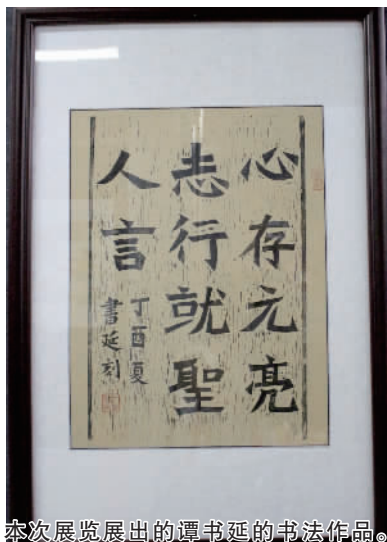 心存元亮
志行就聖
人言
丁酉夏
書延刻
本次展览展出的谭书延的书法作品。